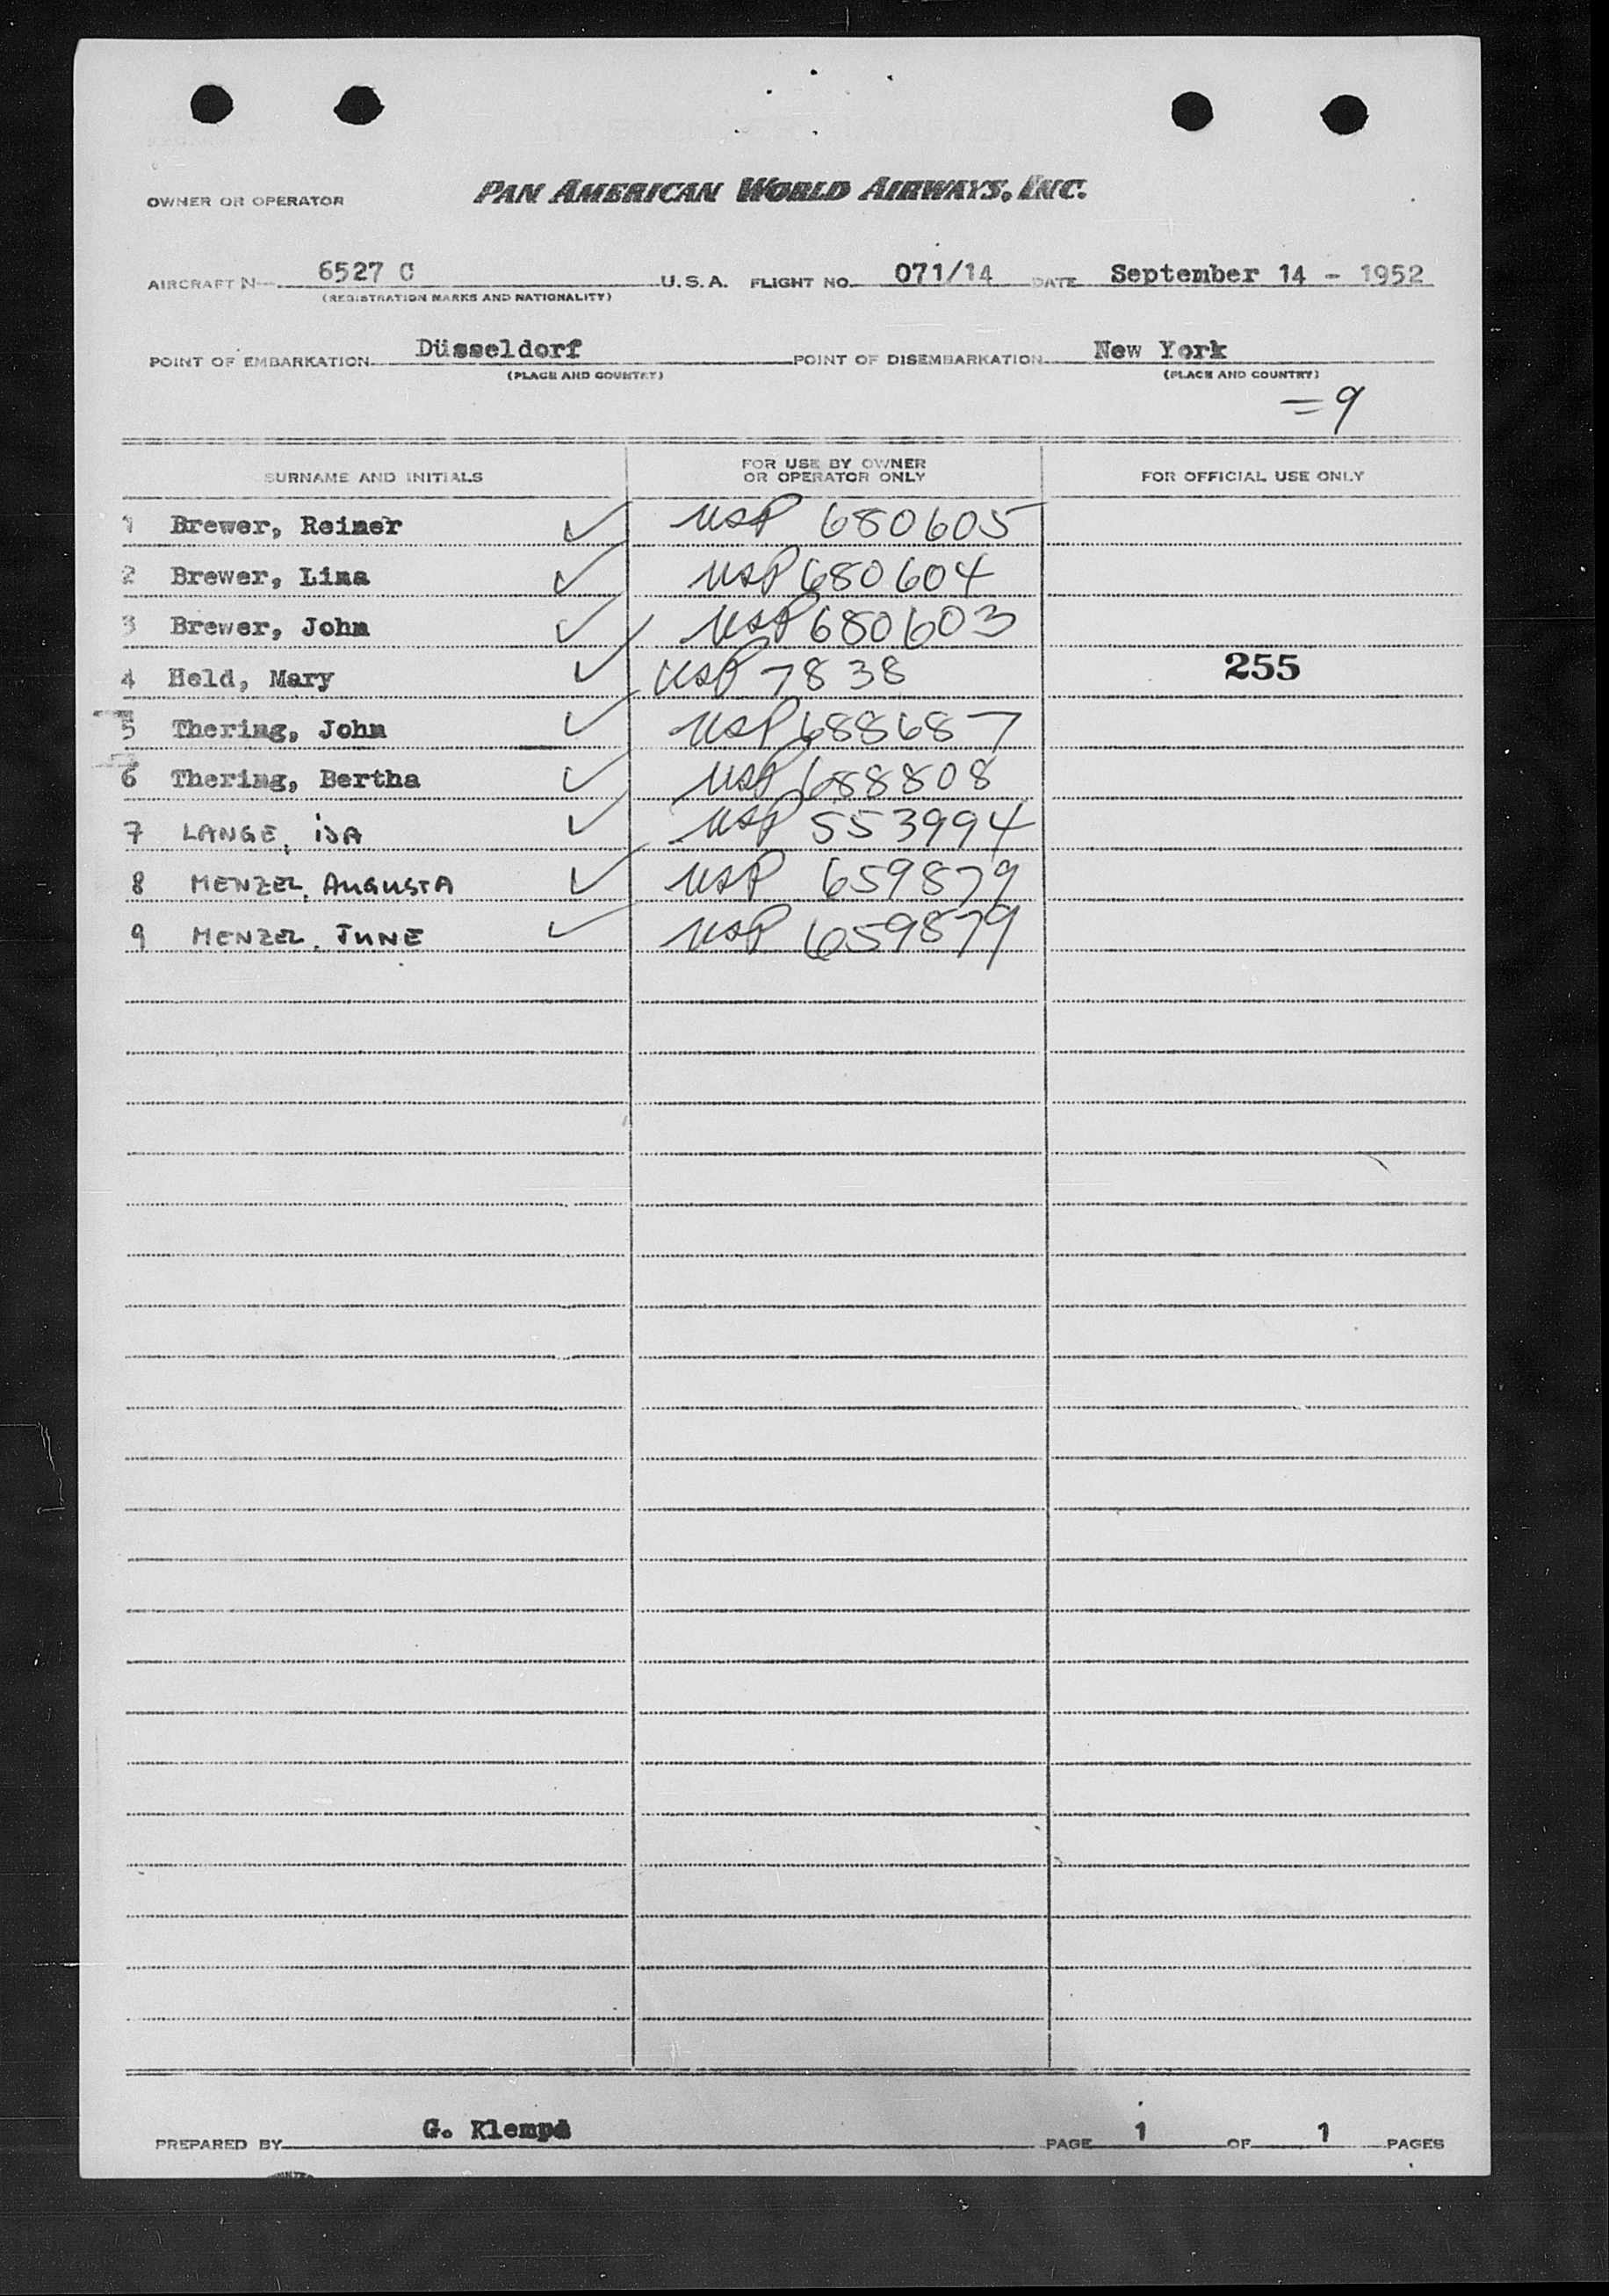 OWNER OR OPERATOR PAN AMERICAN WORLD AIRWAYS, INC.
AIRCRAFT N 6527 C U.S.A. FLIGHT NO. 071/14 DATE September 14 - 1952
(REGISTRATION MARKS AND NATIONALITY)
POINT OF EMBARKATION Düsseldorf POINT OF DISEMBARKATION New York
(PLACE AND COUNTRY) (PLACE AND COUNTRY)
=9
SURNAME AND INITIALS FOR USE BY OWNER OR OPERATOR ONLY FOR OFFICIAL USE ONLY
1 Brewer, Reiner ✓ USP 680605
2 Brewer, Lina ✓ USP 680604
3 Brewer, John ✓ USP 680603
4 Held, Mary ✓ USP 7838 255
5 Thering, John ✓ USP 688687
6 Thering, Bertha ✓ USP 688808
7 LANGE, iDA ✓ USP 553994
8 MENZEL, AUGUSTA ✓ USP 659879
9 MENZEL, JUNE ✓ USP 659879
PREPARED BY G. PAGE 1 OF 1 PAGES